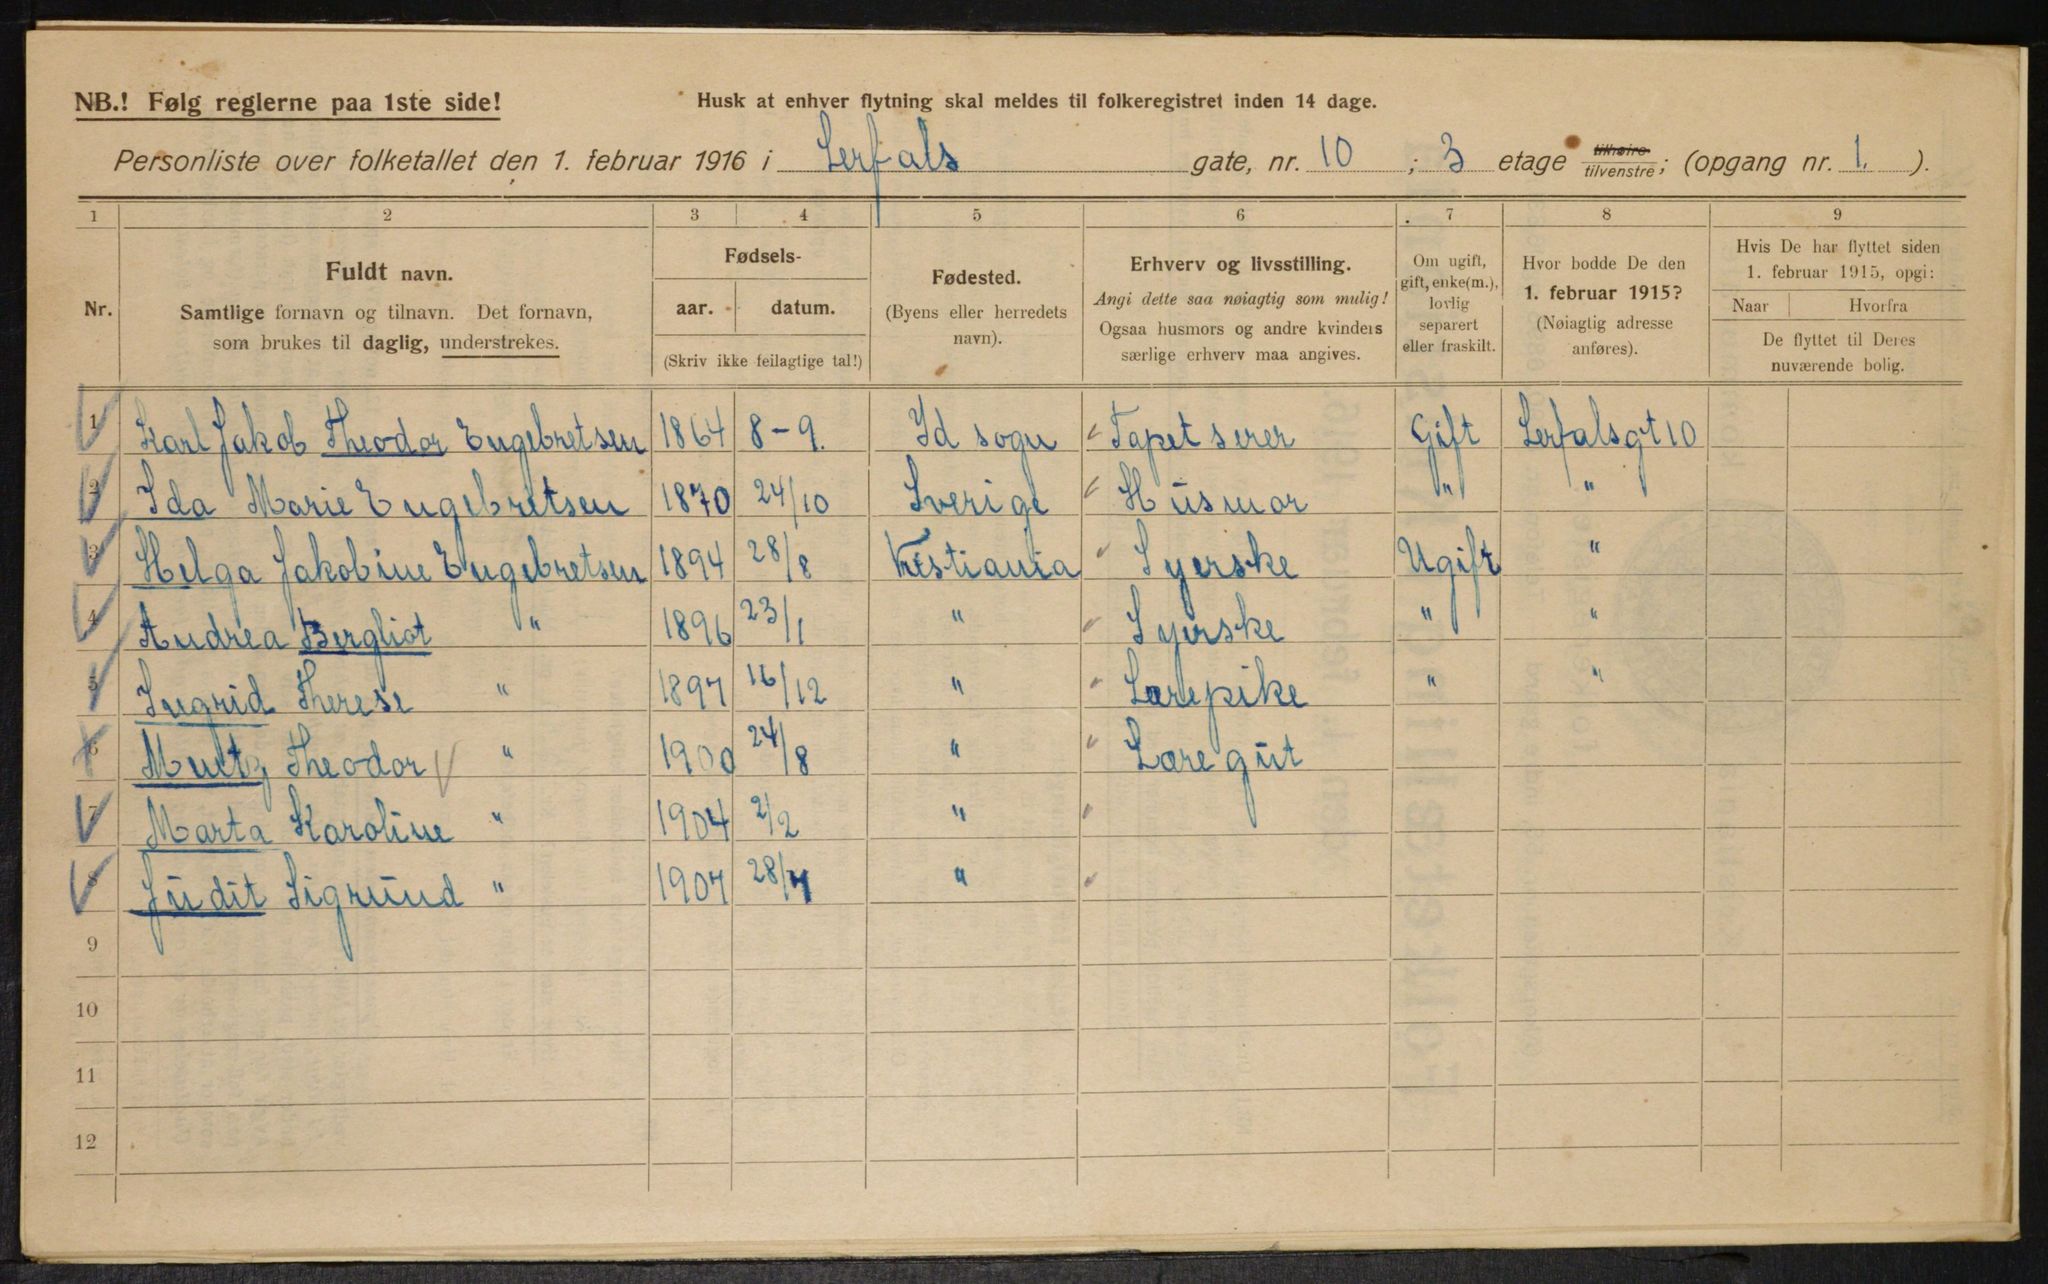 NB.! Følg reglerne paa 1ste side!
Husk at enhver flytning skal meldes til folkeregistret inden 14 dage.
Personliste over folketallet den 1. februar 1916 i Lerfals gate, nr. 10 ; 3 etage tilhøire tilvenstre; (opgang nr. 1. ).
1 2 3 4 5 6 7 8 9
Nr.
Fuldt navn.
Samtlige fornavn og tilnavn. Det fornavn,
som brukes til daglig, understrekes.
Fødsels-
aar. datum.
(Skriv ikke feilagtige tal!)
Fødested.
(Byens eller herredets
navn).
Erhverv og livsstilling.
Angi dette saa nøiagtig som mulig!
Ogsaa husmors og andre kvinders
særlige erhverv maa angives.
Om ugift,
gift, enke(m.),
lovlig
separert
eller fraskilt.
Hvor bodde De den
1. februar 1915?
(Nøiagtig adresse
anføres).
Hvis De har flyttet siden
1. februar 1915, opgi:
Naar Hvorfra
De flyttet til Deres
nuværende bolig.
1 Karl Jakob Theodor Engebretsen 1864 8-9. Id sogn Tapetserer Gift Lerfalsgt 10
2 Ida Marie Engebretsen 1870 24/10 Sverige Husmor " "
3 Helga Jakobine Engebretsen 1894 28/8 Kristiania Syerske Ugift "
4 Andrea Bergliot " 1896 23/1 " Syerske " "
5 Ingrid Therese " 1897 16/12 " Lærepike " "
6 Theodor " 1900 24/8 " Læregut
7 Marta Karoline " 1904 2/2 "
8 Judit Sigrund " 1907 28/7 "
9
10
11
12